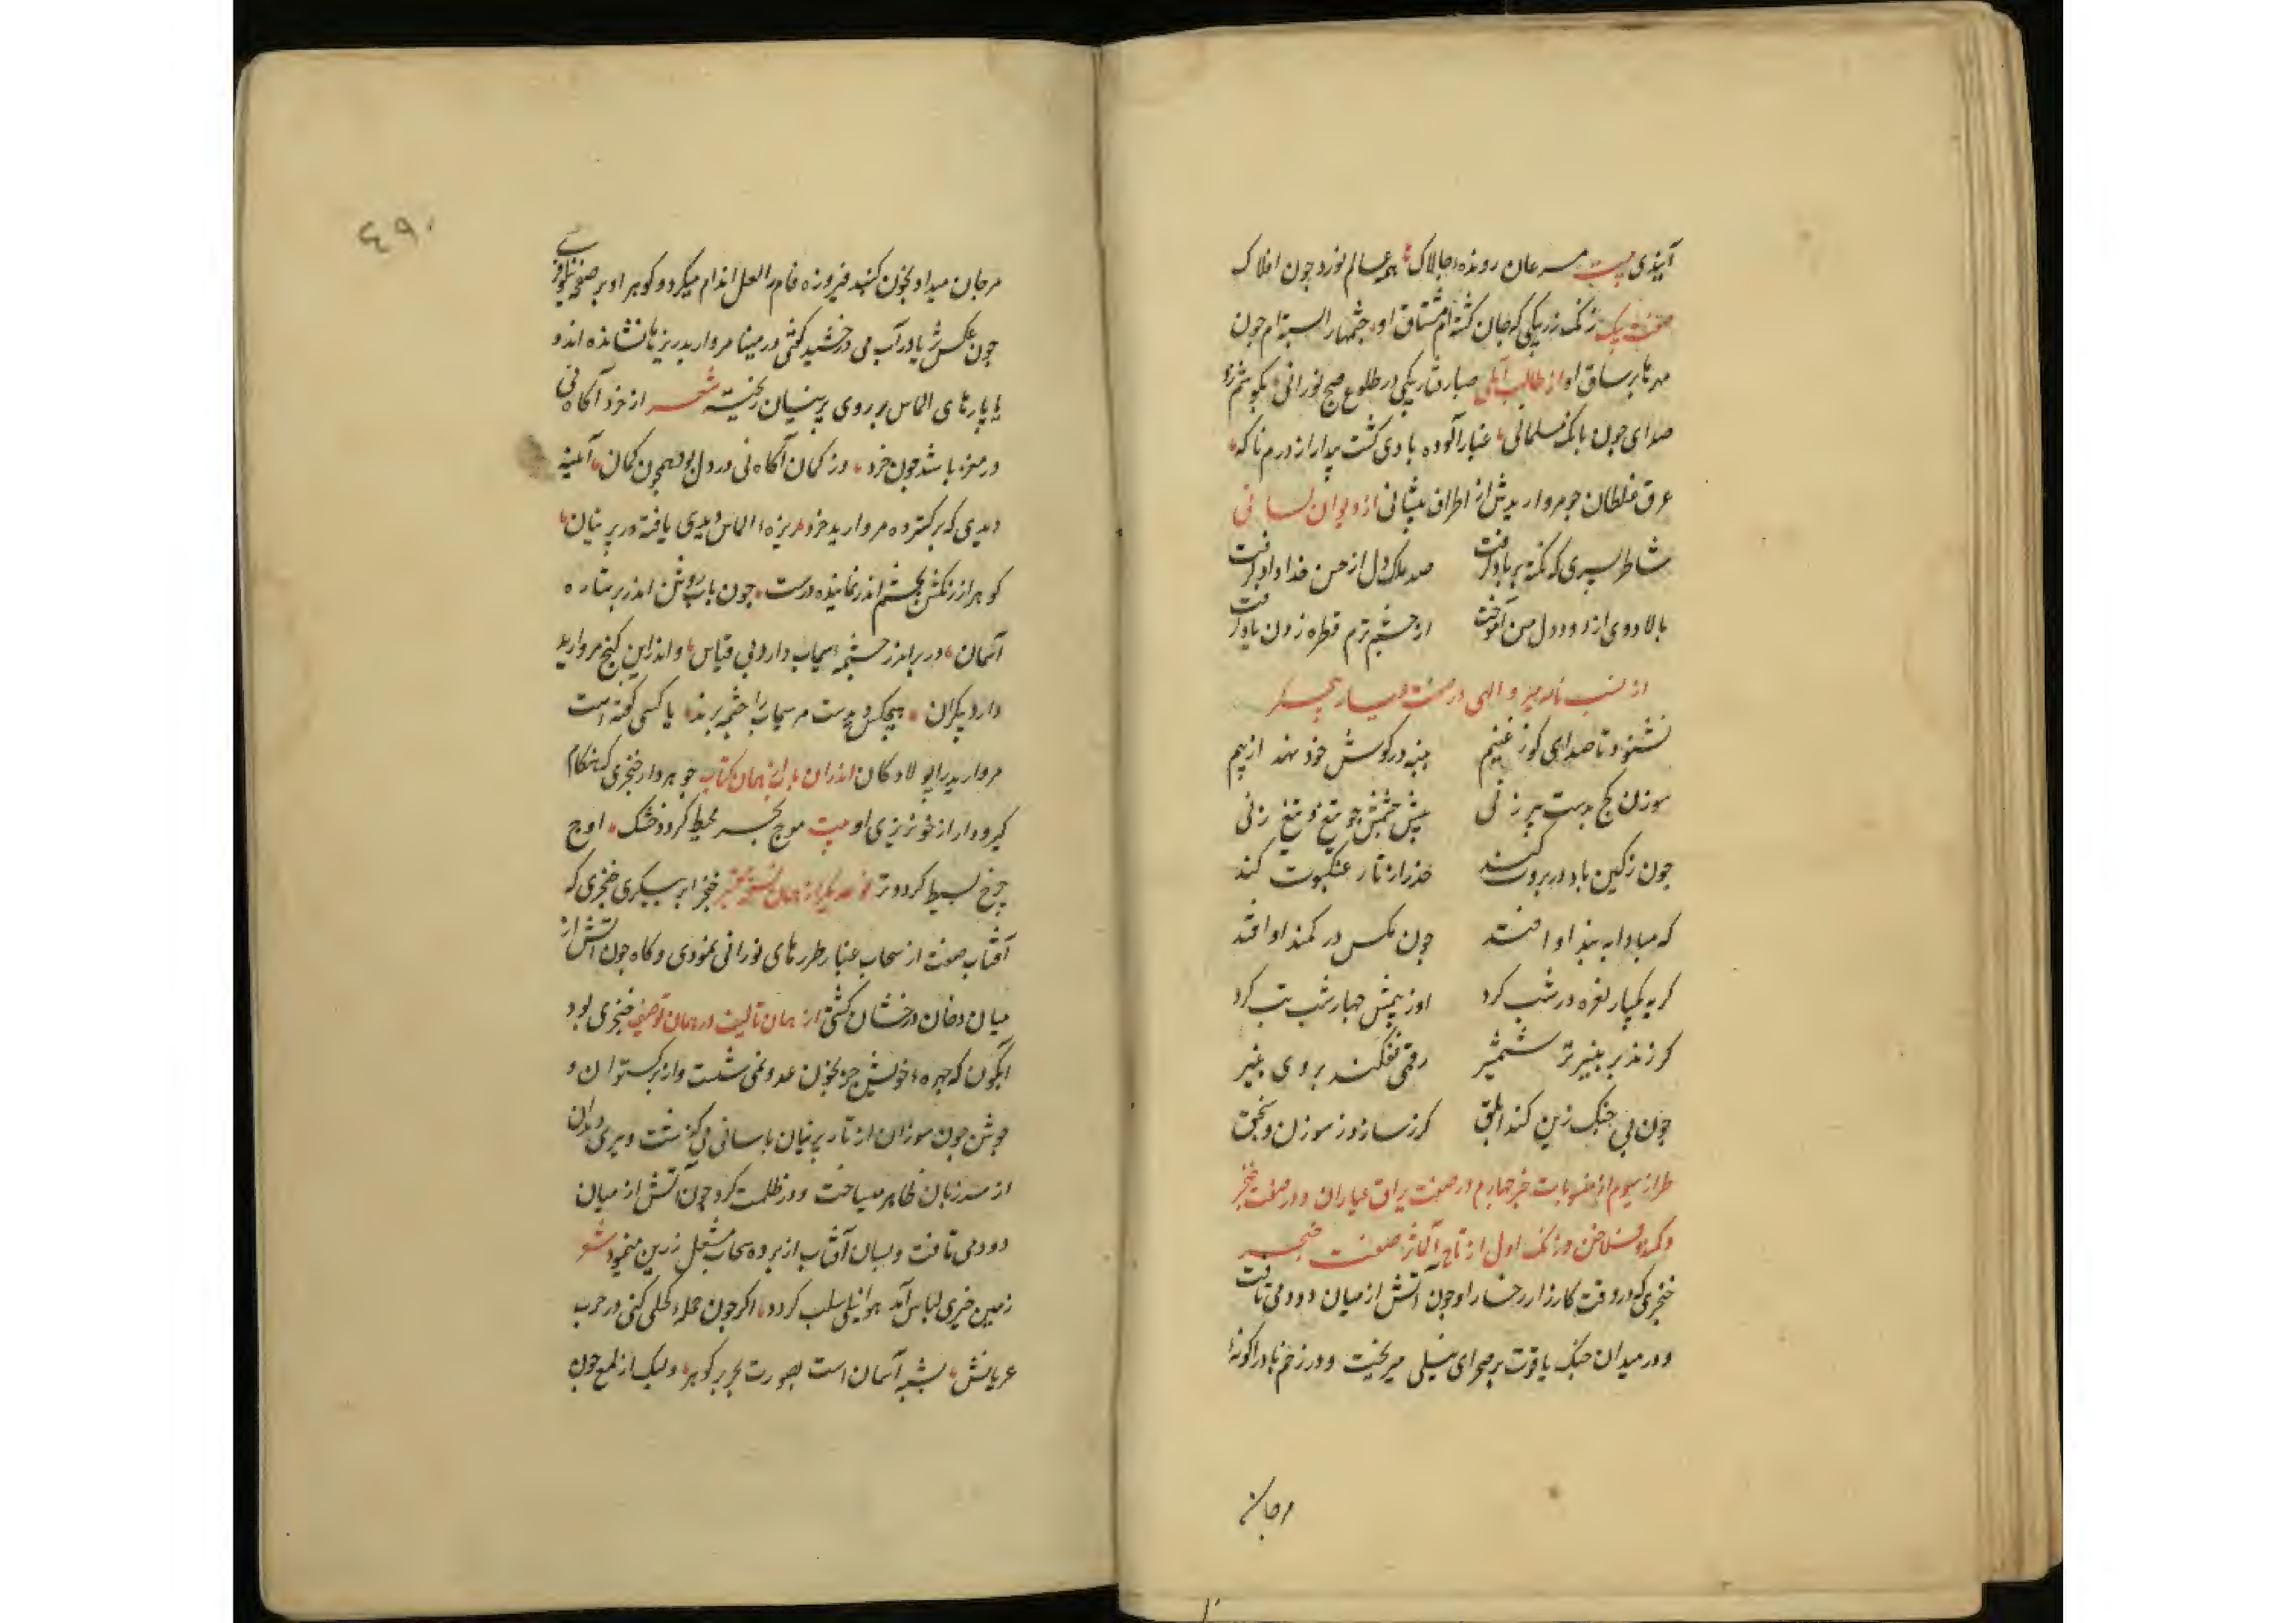 آیندی بیت مسرعان رونده چالاک همه عالم نورد چون افلاک
صفت پیک زنگ زریکی که جان گشته‌ام مشتاق او چشمها را بسته‌ام چون
مهرها بر ساق او از طالب آملی صبا رفتار پیکی در طلوع صبح نورانی بگوشم زد
صدای چون بانگ مسلمانی غبار آلوده بادی گشت پیدا از درم ناگه
عرق غلطان چو مروارید از اطراف پیشانی از دیوان لسانی
شاطر پسری که نکته بر باد گرفت صد ملک دل از حسن خداداد گرفت
بالا دوی از دود دل من آموخت از چشم ترم قطره زدن یاد گرفت
از میر والهی در صفت عیار
نشنود تا صدای کوس غنیم پنبه در گوش خود نهد از بیم
سوزن کج بدست پیر زنی پیش چشمش چو تیغ و تیغ زنی
چون زکین باد در بروت کند حذر از تار عنکبوت کند
که مبادا به بند او افتد چون مگس در کمند او افتد
گربه یکبار نعره در شب کرد او ز بیمش چهار شب تب کرد
گر زند بر پنیر تر شمشیر رقمی نفکند بروی پنیر
چون پی جنگ زین کند ابلق گرز سازد ز سوزن و
طراز سیوم از چهارم در صفت یراق عیاران و در صفت خنجر
و کمند و فلاخن و زنگ اول از تاج المآثر صفت خنجر
خنجری که در وقت کارزار رخسار او چون آتش از میان دود می تافت
و در میدان جنگ یاقوت بر صحرای نیلی میریخت و در زخم
مرجان
٤٩٠
مرجان میداد و بخون گنبد فیروزه فام را لعل اندام میکرد و گوهر او بر صفحه نیلوفری
چون عکس ثریا در آب می درخشید گفتی در مینا مروارید ریزها نشانده اند و
یا پارهای الماس بر روی پرنیان ریخته شعر از خرد آگاه نی
در مغز باشد چون خرد وز گمان آگاه نی در دل بود همچون گمان آینه
دیدی که بر گسترده مروارید خرد ریزه الماس دیدی یافته در پرنیان
گوهر از رنگش بچشم اندر نماینده درست چون باب روشن اندر بر ستاره
آسمان در بر اندر چشمه سیماب دارد بی قیاس و اندر این گنج مروارید
دارد بیکران هیچکس دیدست مر سیماب را چشمه پرند یا کسی گفته است
مروارید را پولاد کان اندران باب از همان کتاب جوهردار خنجری که هنگام
گیرودار از خونریزی او بیت موج بحر محیط گردد خشک اوج
چرخ بسیط گردد تر از همان نسخه خنجر ابر پیکری خنجری که
آفتاب صفت از سحاب غبار طرر های نورانی نمودی و گاه چون آتش از
میان دخان درخشان گشتی از همان تالیف در همان توصیف خنجری بود
آبگون که چهره خویش جز بخون عدو نمی شست و از برگستوان و
جوشن چون سوزان از تار پرنیان باسانی می گذشت
از سر زبان ظاهر میساخت و در ظلمت گرد چون آتش از میان
دود می تافت و بسان آفتاب از پرده سحاب مشعل زرین مینمود شعر
زمین خیری لباس آید هوا نیلی سلب گردد اگر چون حمله کلی کنی در حرب
عریانش بشبه آسمان است بصورت بحر پر گوهر ولیک از لمع چون